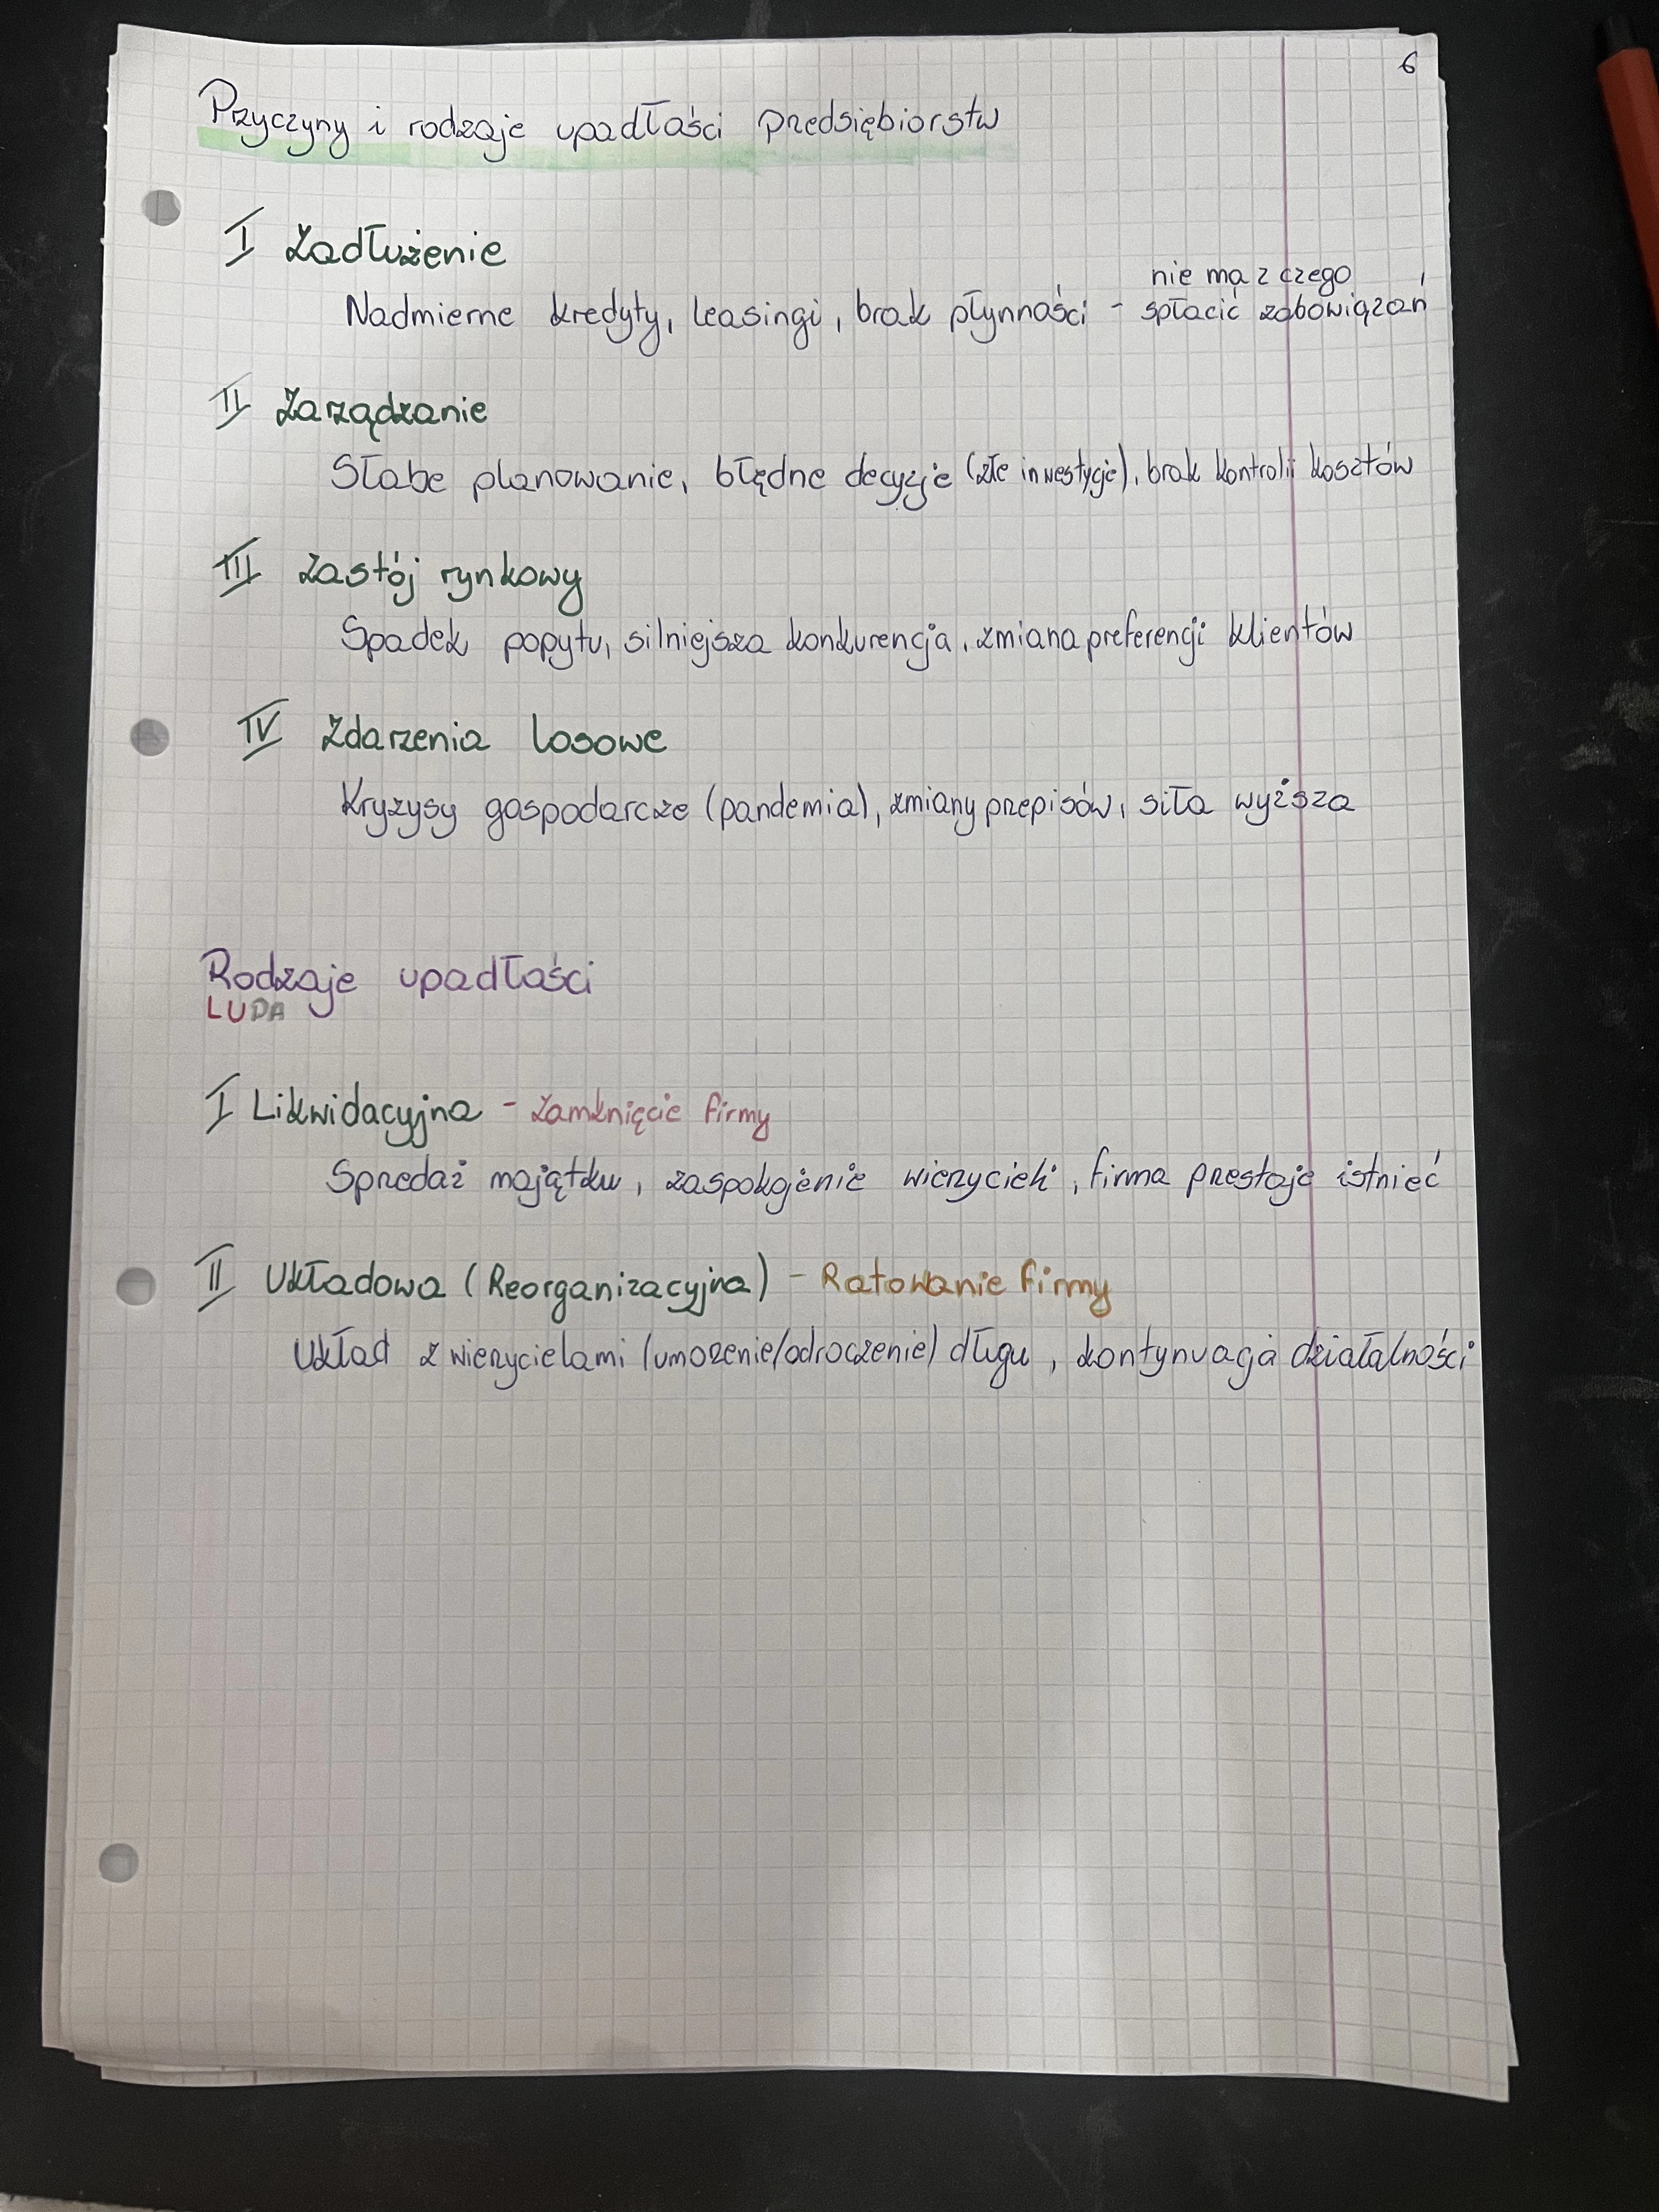 6
Przyczyny i rodzaje upadłości przedsiębiorstw
I Zadłużenie
nie ma z czego
Nadmierne kredyty, leasingi, brak płynności - spłacić zobowiązań
II Zarządzanie
Słabe planowanie, błędne decyzje (złe inwestycje), brak kontroli kosztów
III Zastój rynkowy
Spadek popytu, silniejsza konkurencja, zmiana preferencji klientów
IV Zdarzenia losowe
Kryzysy gospodarcze (pandemia), zmiany przepisów, siła wyższa
Rodzaje upadłości
LUPA
I Likwidacyjna - zamknięcie firmy
Sprzedaż majątku, zaspokojenie wierzycieli, firma przestaje istnieć
II Układowa (Reorganizacyjna) - Ratowanie firmy
Układ z wierzycielami (umorzenie/odroczenie) długu, kontynuacja działalności